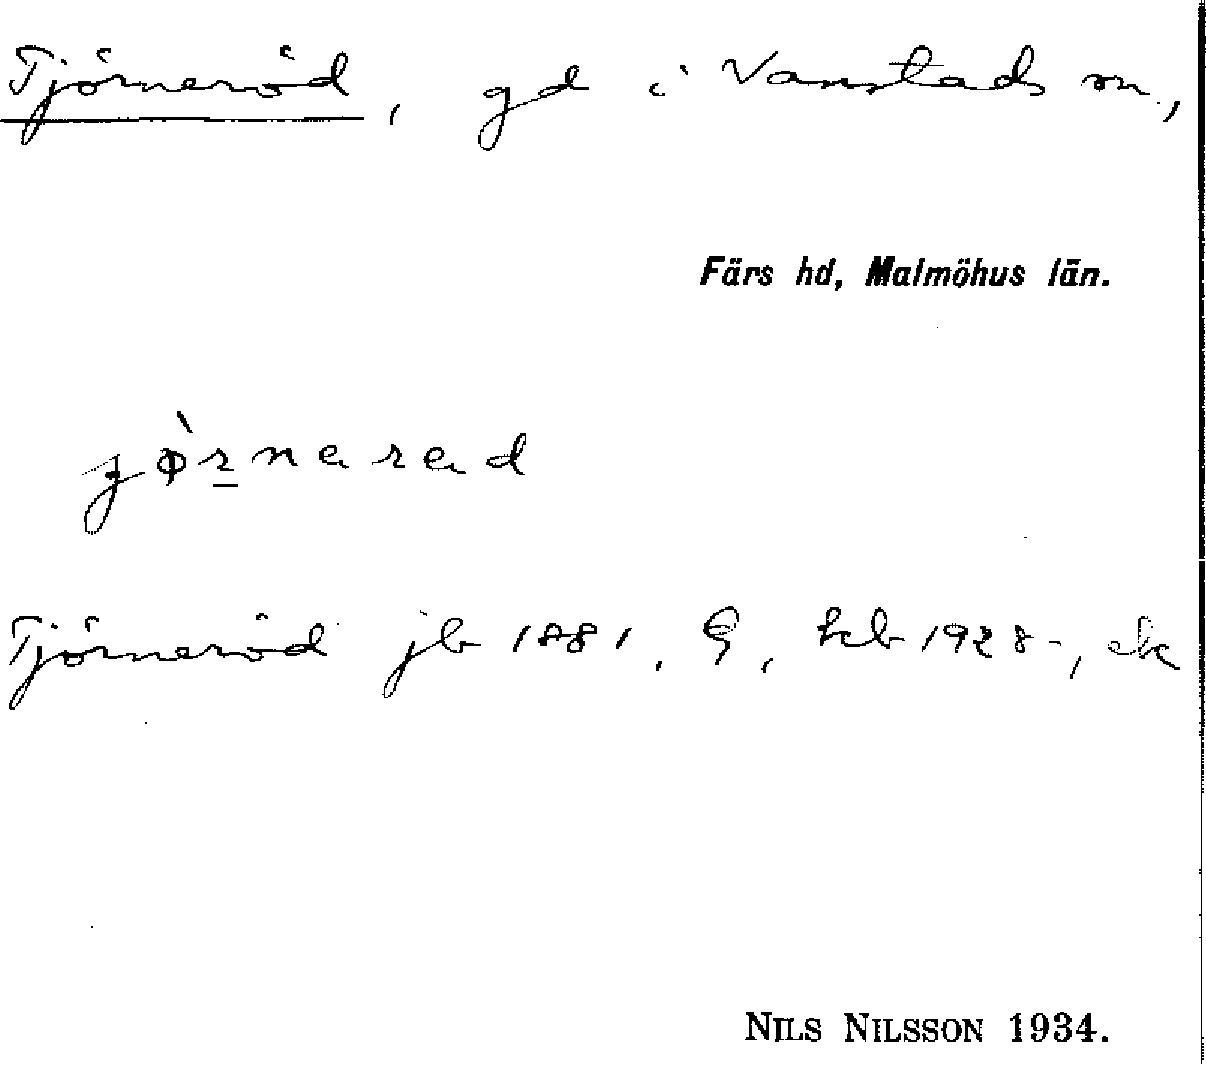 Tjörneröd, gd i Vanstads sn.,
Färs hd, Malmöhus län.
Tjörneröd jb 1881, G, kb 1928-, ek
NILS NILSSON 1934.